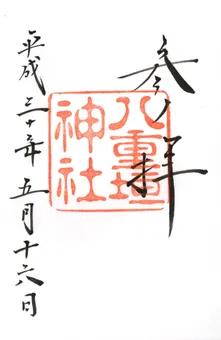 参拝
八重垣
神社
平成三十年五月十六日